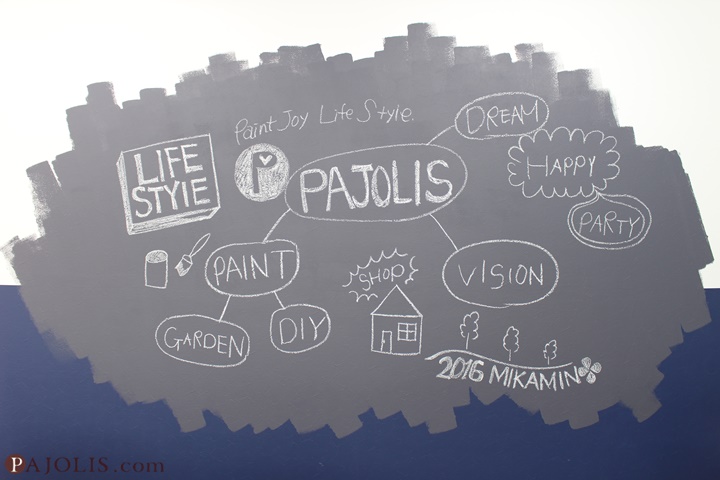 Paint Joy Life Style.
DREAM
LIFE
STYlE
P
PAJOLIS
HAPPY
PARTY
PAINT
SHOP
VISION
GARDEN
DIY
2016 MIKAMIN
PAJOLIS.com